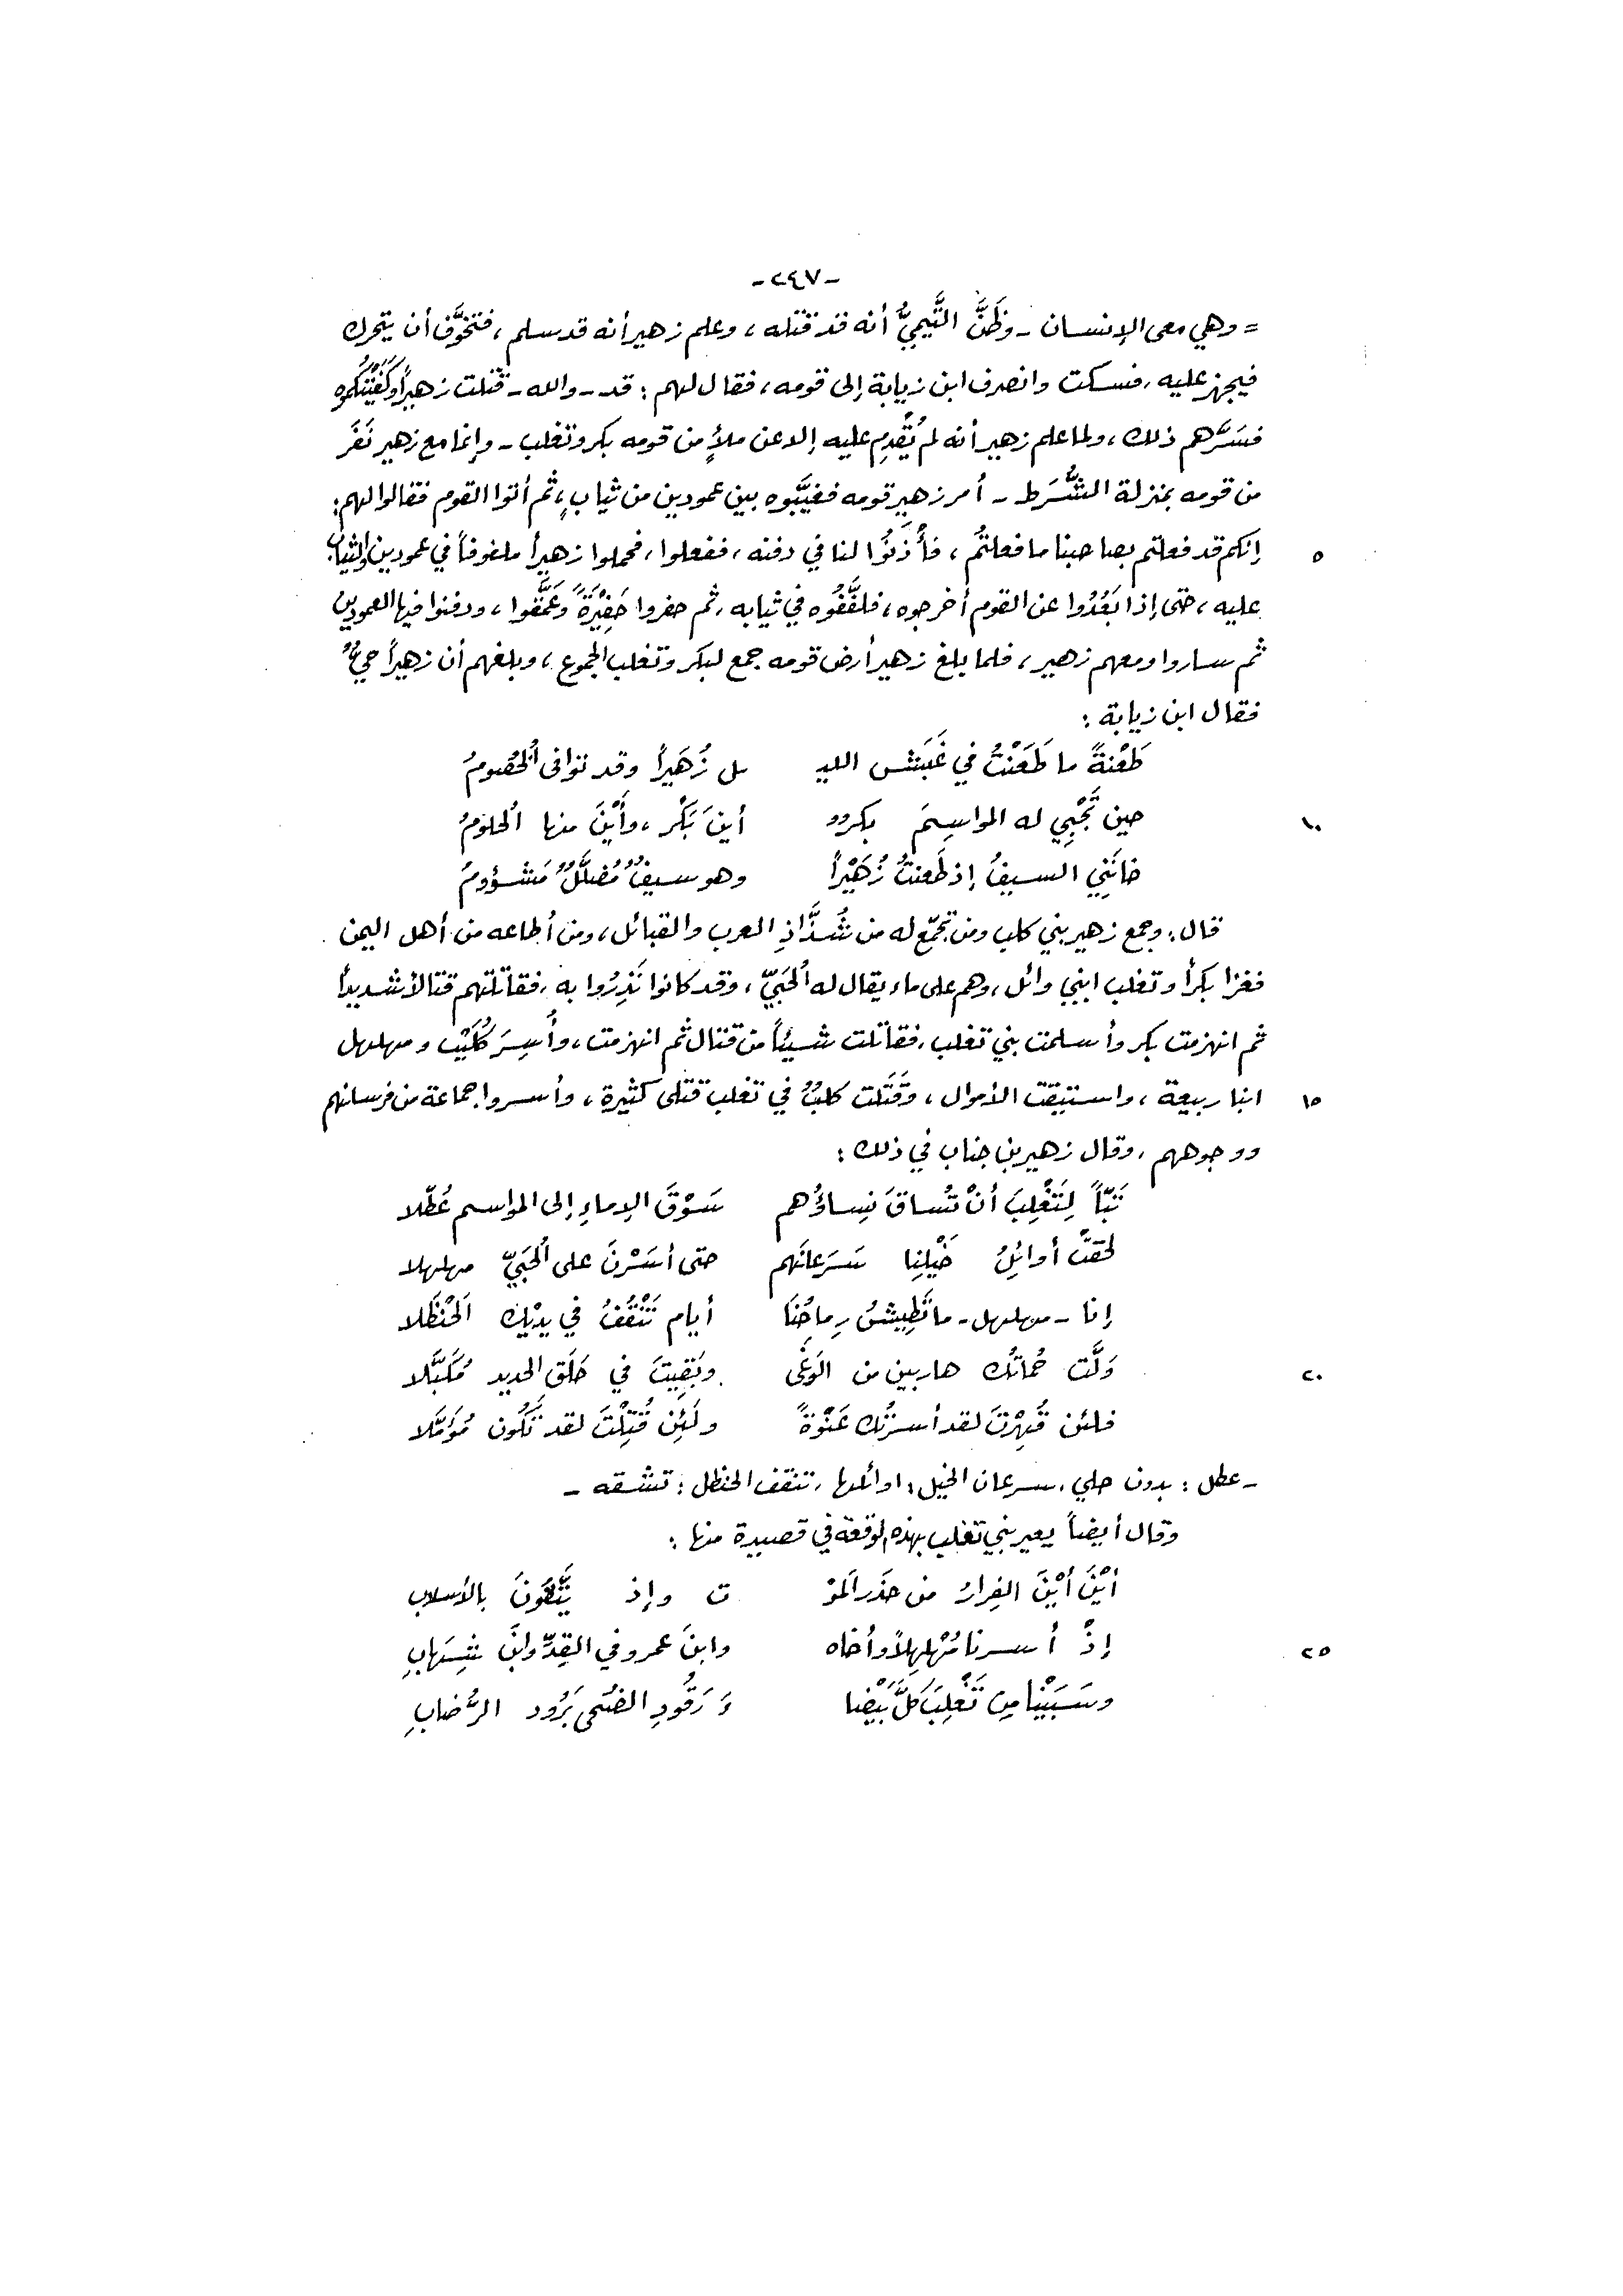 -٢٤٧-
= وهي معى الإنسان - وظَنَّ التَّيميُّ أنه قد قتله، وعلم زهير أنه قد سلم، فتخوَّف أن يتحرك
فيجهز عليه، فسكت وانصرف ابن زيابة إلى قومه، فقال لهم: قد - والله - قتلت زهيراً وكَفَيْتُكموه
فسَرَّهم ذلك، ولما علم زهير أنه لم يُقْدِم عليه إلا عن ملأٍ من قومه بكر وتغلب - وإنما مع زهير نَفَر
من قومه بمنزلة الشُّرَط - أمر زهير قومه فغيَّبوه بين عمودين من ثيابٍ، ثم أتوا القوم فقالوا لهم:
٥ إنكم قد فعلتم بصاحبنا ما فعلتُم، فأْذَنُوا لنا في دفنه، ففعلوا، فحملوا زهيراً ملفوفاً في عمودين والثياب
عليه، حتى إذا بَعُدُوا عن القوم أخرجوه، فلفَّفُوه في ثيابه، ثم حفروا حَفِيْرَةً وعَمَّقوا، ودفنوا فيها العمودين
ثم ساروا ومعهم زهير، فلما بلغ زهير أرض قومه جمع لبكر وتغلب الجموع، وبلغهم أن زهيراً حيٌّ
فقال ابن زيابة:
طَعْنةً ما طَعَنْتُ في غَبَشِ الليـ ـل زُهَيراً وقد توافى الخُصُومُ
١٠ حين تَجْبِي له المواسِمَ بكرو أينَ بَكْر، وأَيْنَ منها الحلومُ
خانَنِي السيفُ إذ طَعنتُ زُهَيْراً وهو سيفٌ مُضَلَّلٌ مَشؤومُ
قال: وجمع زهير بني كلب ومن تجمّع له من شُذَّاذِ العرب والقبائل، ومن أطاعه من أهل اليمن.
فغزا بكراً وتغلب ابني وائل، وهم على ماء يقال له الحُبَيّ، وقد كانوا نَذِرُوا به، فقاتلهم قتالاً شديداً
ثم انهزمت بكر وأسلمت بني تغلب، فقاتلت شيئاً من قتال ثم انهزمت، وأُسِرَ كُلَيْب ومهلهل
١٥ ابنا ربيعة، واستيقت الأموال، وقَتَلت كلبٌ في تغلب قتلى كثيرة، وأسروا جماعة من فرسانهم
ووجوههم، وقال زهير بن جناب في ذلك:
تَبّاً لِتَغْلِبَ أنْ تُساقَ نِساؤُهم سَوْقَ الإماءِ إلى المواسم عُطَّلا
لحقتْ أوائِلُ خَيْلِنا سَرَعانَهم حتى أسَرْنَ على الحُبَيّ مهلهلا
إنا - مهلهل - ما تَطِيشُ رِماحُنَا أيام تَنْقُفُ في يديْك الحَنْظَلا
٢٠ وَلَّت حُماتُك هاربين من الوَغَى وبَقِيتَ في حَلَق الحديد مُكَبَّلا
فلئن قُهِرْتَ لقد أسرتُك عَنْوَةً ولَئِن قُتِلْتَ لقد تَكُون مُؤَمَّلا
- عطل: بدون حلي، سرعان الخيل: اوائلها، تنقف الحنظل: تشقه -
وقال أيضاً يعير بني تغلب بهذه الوقعة في قصيدة منها:
أيْنَ أيْنَ الفِرارُ من حذَرِ المَوْ ت وإذ يَتَّقُونَ بالأسلابِ
٢٥ إذْ أسرنا مُهَلهِلاً وأخاه وابنَ عمرو في القِدِّ وابنَ شِهابِ
وسَبَيْنا مِن تَغْلِبَ كلَّ بَيْضا ءَ رَقُودِ الضُحى بَرُود الرُّضابِ